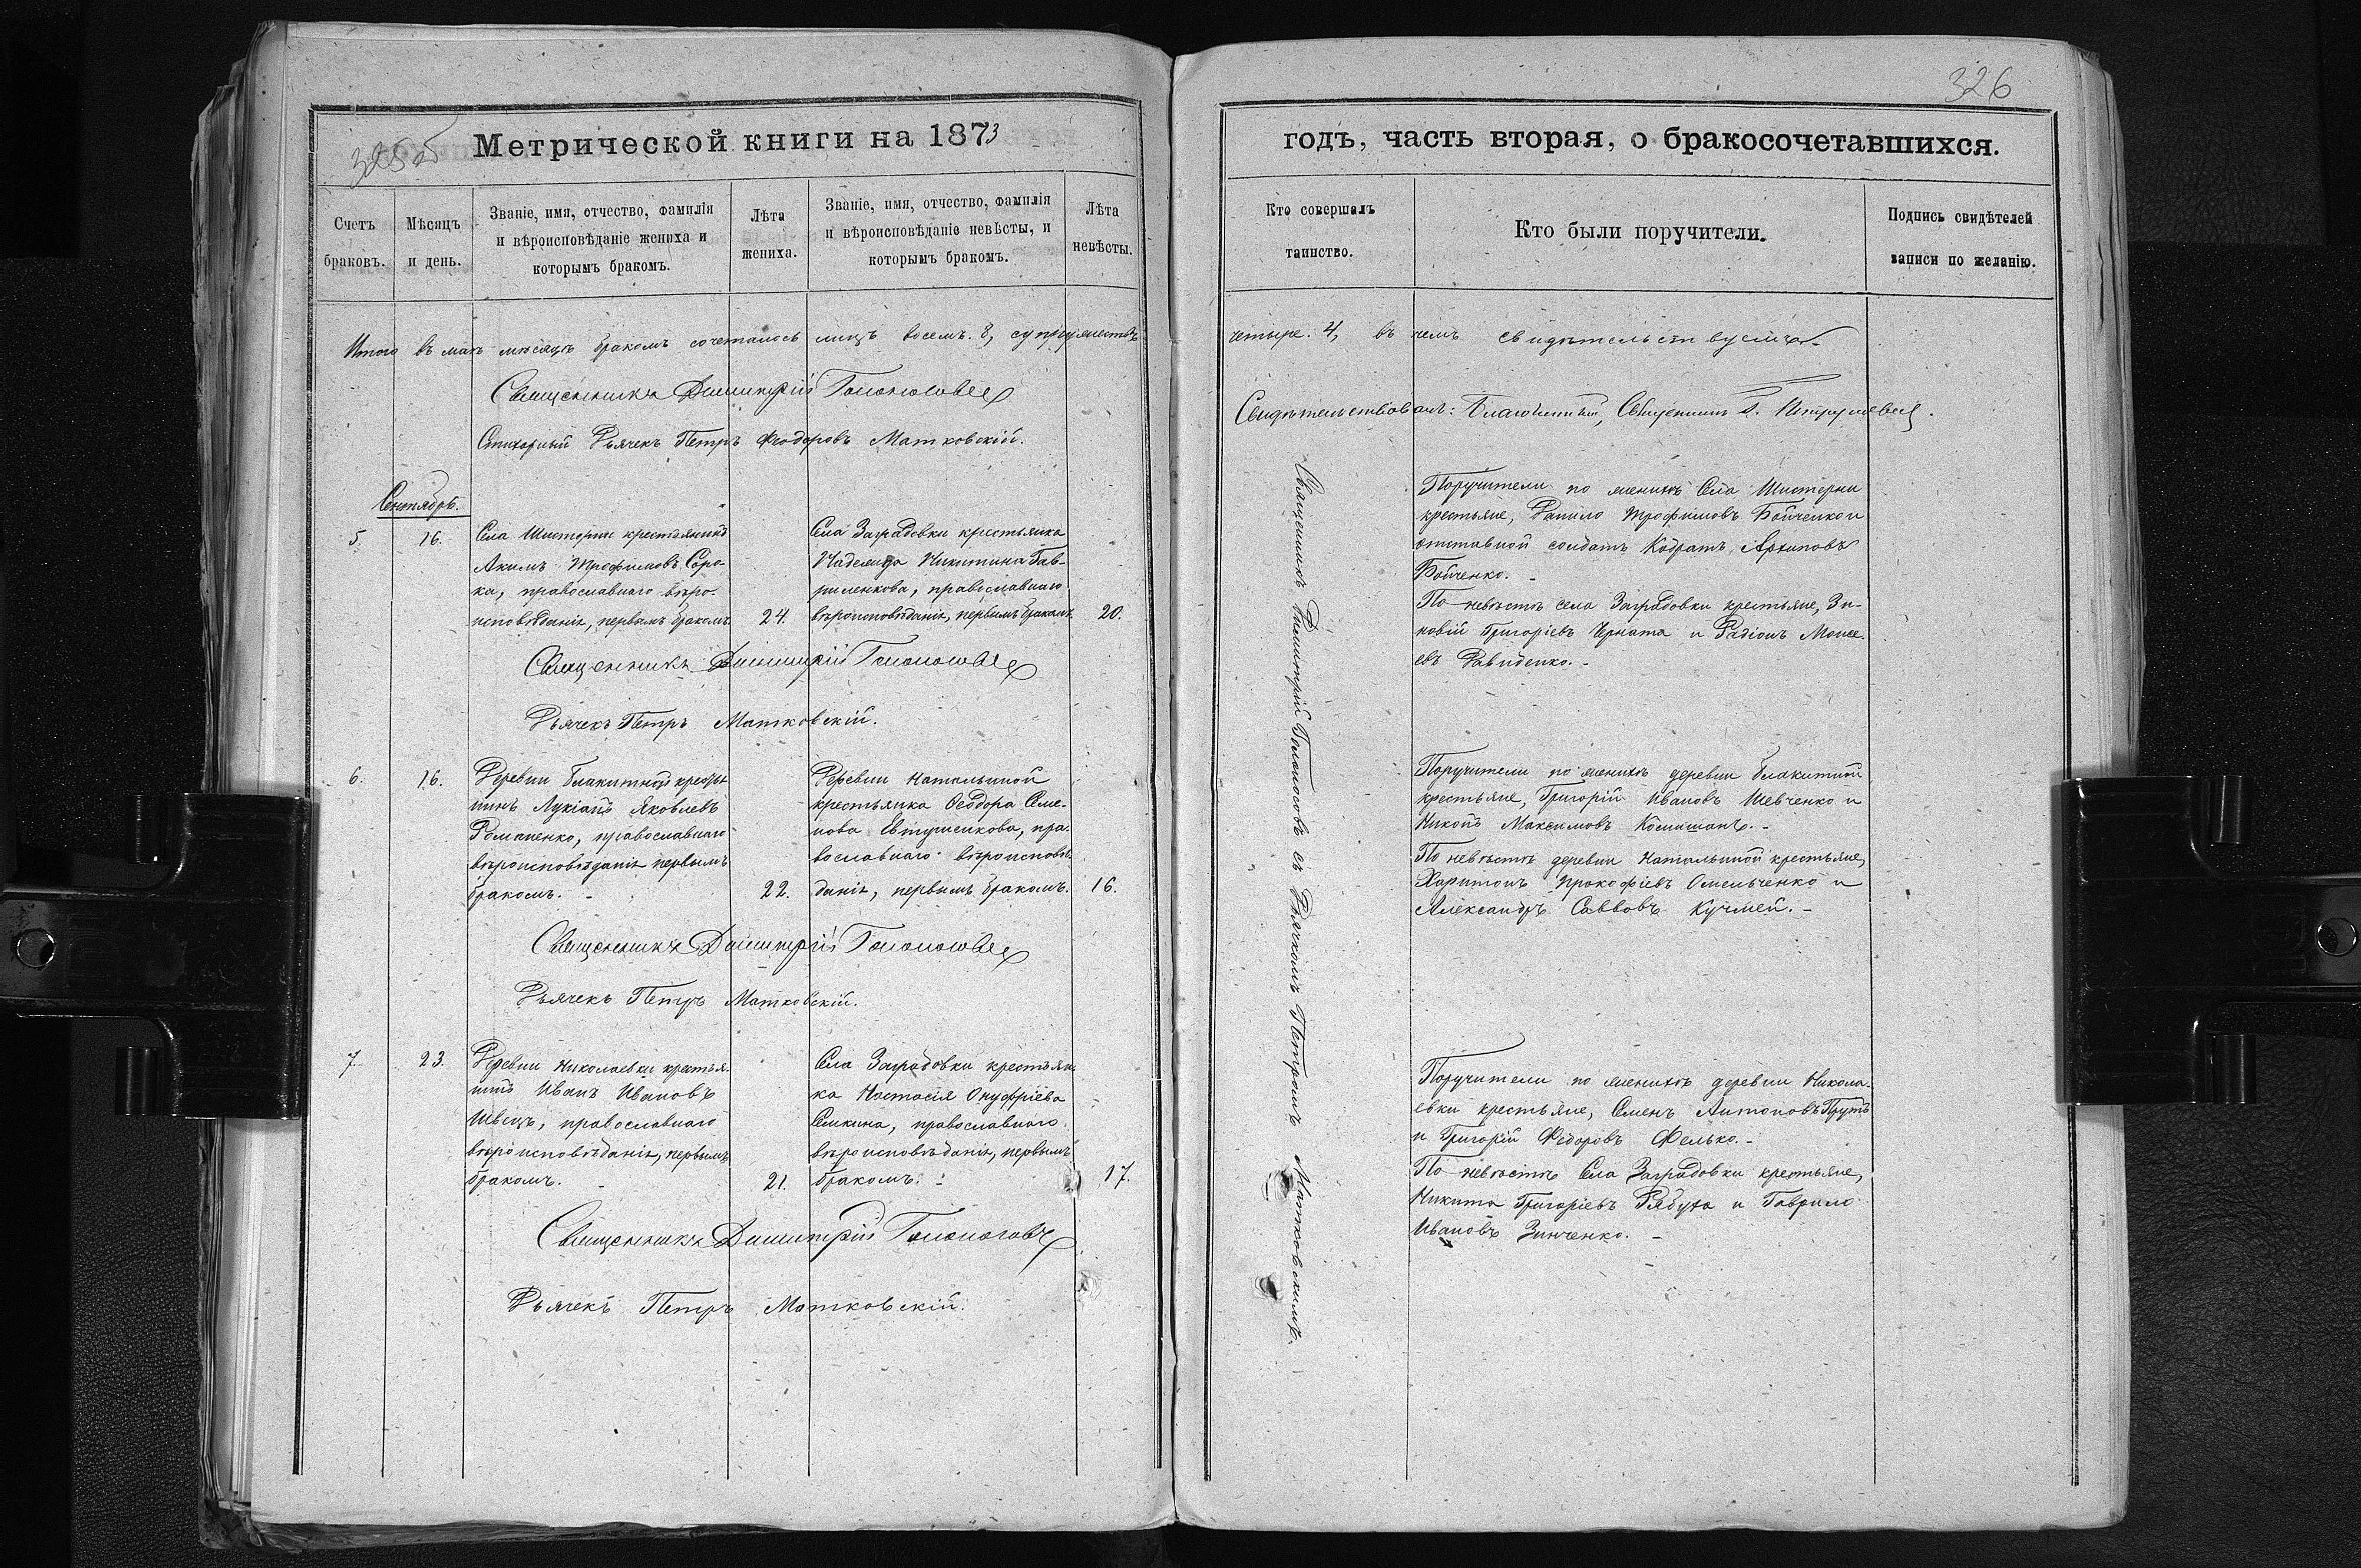 325об
Метрической книги на 1873
Счетъ браковъ.
Мѣсяцъ и день.
Званіе, имя, отчество, фамилія
и вѣроисповѣданіе жениха и
которымъ бракомъ.
Лѣта жениха.
Званіе, имя, отчество, фамилія
и вѣроисповѣданіе невѣсты, и
которымъ бракомъ.
Лѣта невѣсты.
Итого въ маѣ мѣсяцѣ бракомъ сочеталось лицъ восемъ. 8, супружествъ
Священникъ Димитрій Голоносовъ
Стихарный Дьячекъ Петръ Ѳеодоровъ Матковскій.
Сентябрь.
5.
16.
Села Шестерни крестьянинъ
Акимъ Трофимовъ Соро-
ка, православнаго вѣро-
исповѣданія, первымъ бракомъ.
24.
Села Заградовки крестьянка
Надежда Никитина Гав-
риленкова, православнаго
вѣроисповѣданія, первымъ бракомъ.
20.
Священникъ Димитрій Голоносовъ
Дьячекъ Петръ Матковскій.
6.
16.
Деревни Блакитной крестья
нинъ Лукіанъ Яковлевъ
Романенко, православнаго
вѣроисповѣданія первымъ
бракомъ. -
22.
Деревни Натальиной
крестьянка Ѳеодора Семе-
нова Евтушенкова, пра-
вославнаго вѣроисповѣ-
данія, первымъ бракомъ.
16.
Священникъ Димитрій Голоносовъ
Дьячекъ Петръ Матковскій.
7.
23.
Деревни Николаевки крестья-
нинъ Иванъ Ивановъ
Швецъ, православнаго
вѣроисповѣданія, первымъ
бракомъ.
21.
Села Заградовки крестьян-
ка Настасія Онуфріева
Семкина, православнаго
вѣроисповѣданія, первымъ
бракомъ. -
17.
Священникъ Димитрій Голоносовъ
Дьячекъ Петръ Матковскій.
326
годъ, часть вторая, о бракосочетавшихся.
Кто совершалъ таинство.
Кто были поручители.
Подпись свидѣтелей записи по желанію.
четыре. 4, въ чемъ свидѣтельствуемъ
Свидѣтельствовалъ: Благочинный, Священникъ
Священникъ Димитрій Голоносовъ съ Дьячкомъ Петромъ Матковскимъ.
Поручители по женихѣ Села Шестерни
крестьяне, Данило Трофимовъ Бойченко и
отставной солдатъ Кодратъ Архиповъ
Бойченко. -
По невѣстѣ села Заградовки крестьяне, Зи-
новій Григоріевъ Черната и Радіонъ Моисе-
евъ Давиденко. -
Поручители по женихѣ деревни Блакитной
крестьяне, Григорій Ивановъ Шевченко и
Никонъ Максимовъ -
По невѣстѣ деревни Натальиной крестьяне,
Харитонъ Прокофіевъ Омельченко и
Александръ Саввовъ Кучмей. -
Поручители по женихѣ деревни Никола-
евки крестьяне, Семенъ Антоновъ Прутъ
и Григорій Федоровъ Фелько. -
По невѣстѣ Села Заградовки крестьяне,
Никита Григоріевъ Рябуха и Гаврило
Ивановъ Зинченко. -